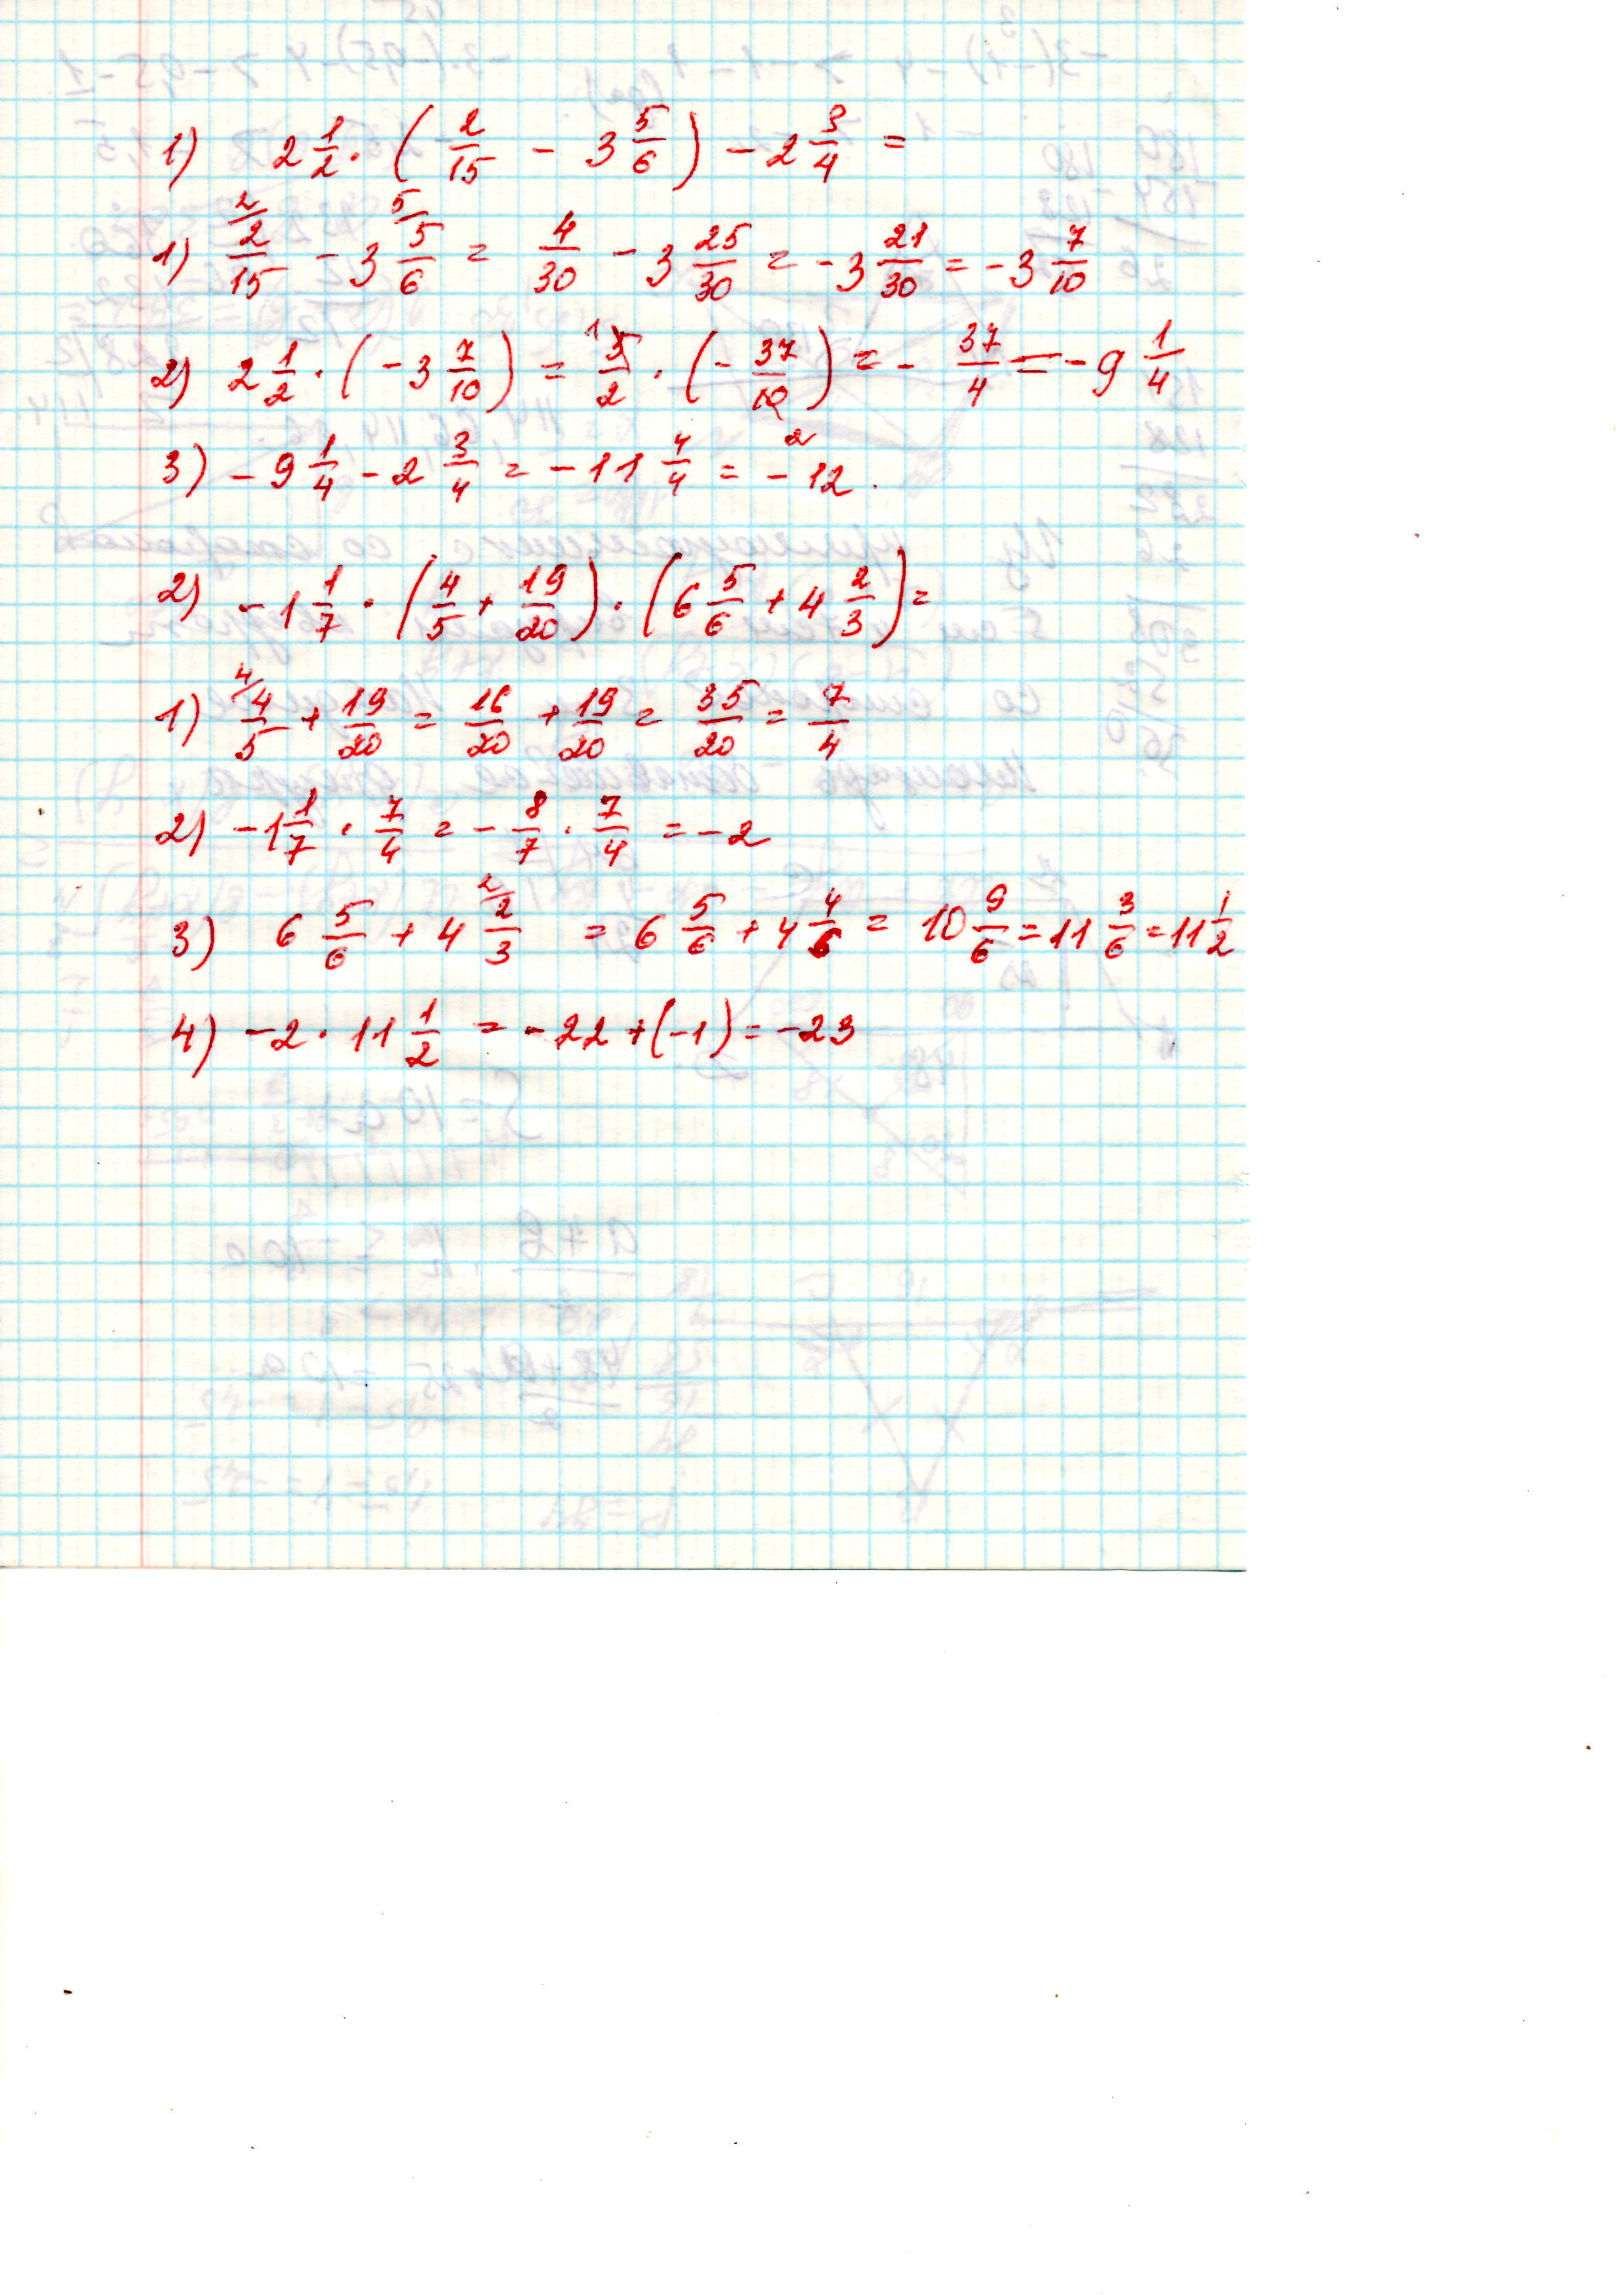 1) 2 1/2 · (2/15 - 3 5/6) - 2 3/4 =
1) 2/15 - 3 5/6 = 4/30 - 3 25/30 = -3 21/30 = -3 7/10
2) 2 1/2 · (-3 7/10) = 5/2 · (-37/10) = -37/4 = -9 1/4
3) -9 1/4 - 2 3/4 = -11 4/4 = -12.
2) -1 1/7 · (4/5 + 19/20) · (6 5/6 + 4 2/3) =
1) 4/5 + 19/20 = 16/20 + 19/20 = 35/20 = 7/4
2) -1 1/7 · 7/4 = -8/7 · 7/4 = -2
3) 6 5/6 + 4 2/3 = 6 5/6 + 4 4/6 = 10 9/6 = 11 3/6 = 11 1/2
4) -2 · 11 1/2 = -22 + (-1) = -23